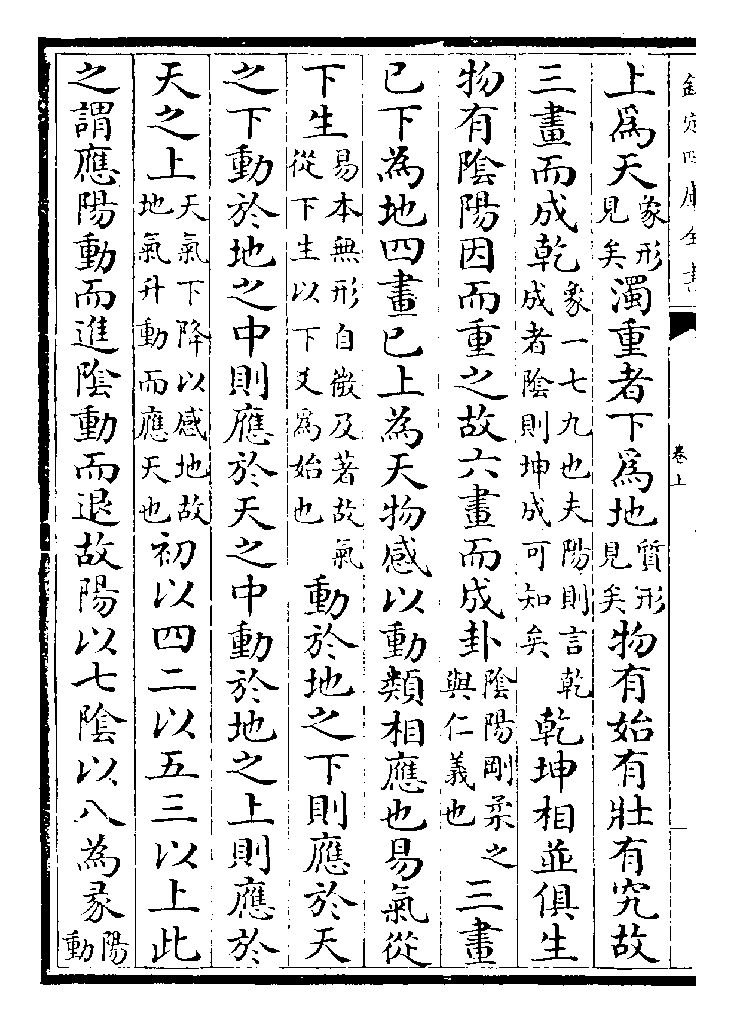 欽定四庫全書
卷上
上爲天象形見矣濁重者下爲地質形見矣物有始有壯有究故
三畫而成乾象一七九也夫陽則言乾成者陰則坤成可知矣乾坤相並俱生
物有陰陽因而重之故六畫而成卦陰陽剛柔之與仁義也三畫
已下為地四畫已上為天物感以動類相應也易氣從
下生易本無形自微及著故氣從下生以下爻爲始也動於地之下則應於天
之下動於地之中則應於天之中動於地之上則應於
天之上天氣下降以感地故地氣升動而應天也初以四二以五三以上此
之謂應陽動而進陰動而退故陽以七陰以八為彖陽動